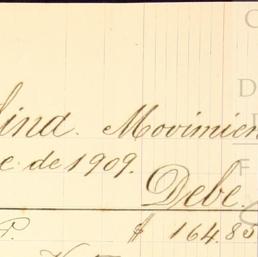 lina. Movimien
e de 1909.
Debe.
P. $ 164.85